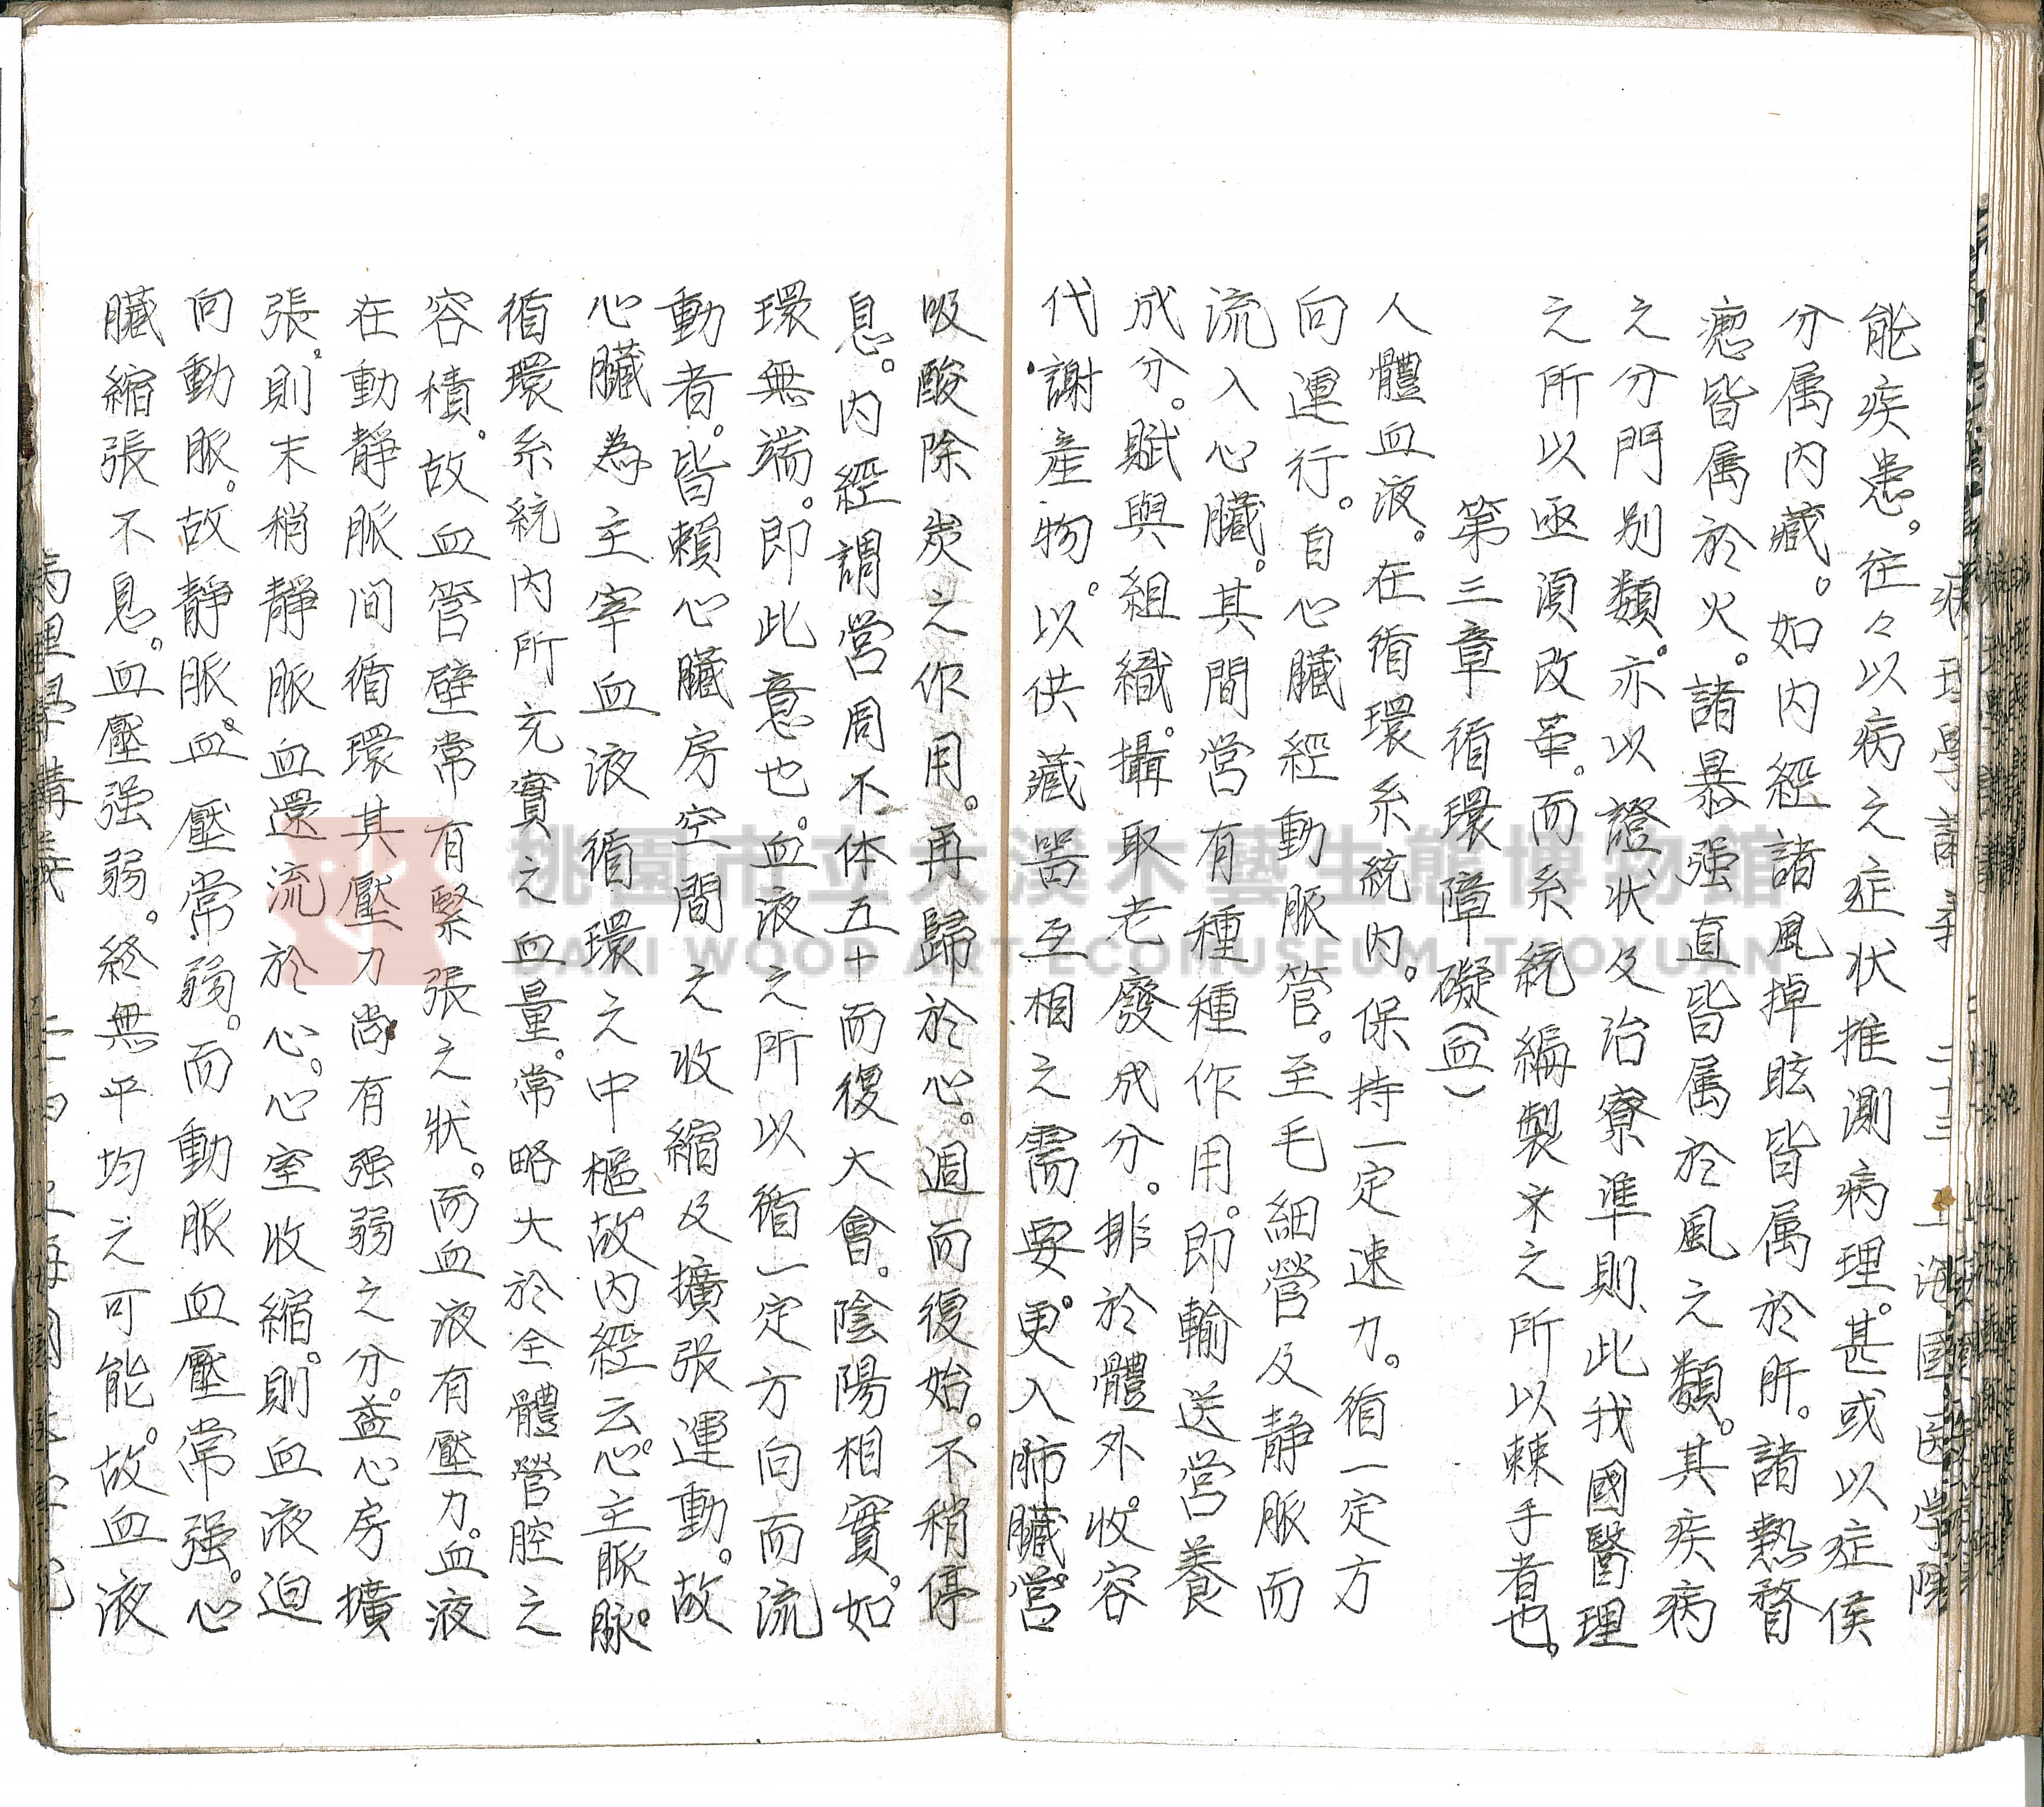 病理學講義 二十三 上海國医学院
能疾患。往々以病之症状推測病理。甚或以症侯
分属内藏。如内經諸風掉眩皆属於肝。諸熱瞀
瘛皆属於火。諸暴强直皆属於風之類。其疾病
之分門别類。亦以證状及治寮準則、此我國醫理
之所以亟須改革。而系統編製之所以棘手者也。
第三章循環障礙(血)
人體血液。在循環系統内。保持一定速力。循一定方
向運行。自心臟經動脈管。至毛細營及静脈而
流入心臟。其間營有種種作用。即輸送营養
成分。賦與組織。攝取老廢成分。排於體外。收容
代謝產物。以供藏噐互相之需要。更入肺臟。营
吸酸除炭之作用。再歸於心。週而復始。不稍停
息。内經謂营周不体五十而復大會。陰陽相實。如
環無端。即此意也。血液之所以循一定方向而流
動者。皆賴心臟房空間之收縮及擴张運動。故
心臟為主宰血液循環之中樞。故内經云。心主脈脉。
循環系統内所充實之血量。常略大於全體營腔之
容積。故血管壁常有緊張之狀。而血液有壓力。血液
在動静脈间循環其壓力尚有强弱之分。盖心房擴
張。則末稍静脈血還流於心。心室收縮。則血液迫
向動脈。故静脈血。血壓常弱。而動脈血壓常强。心
臟縮張不息。血壓强弱。終無平均之可能。故血液
病理學講義 二十四 上海國医学院
桃園市立大溪木藝生態博物館
DAXI WOOD ART ECOMUSEUM, TAOYUAN